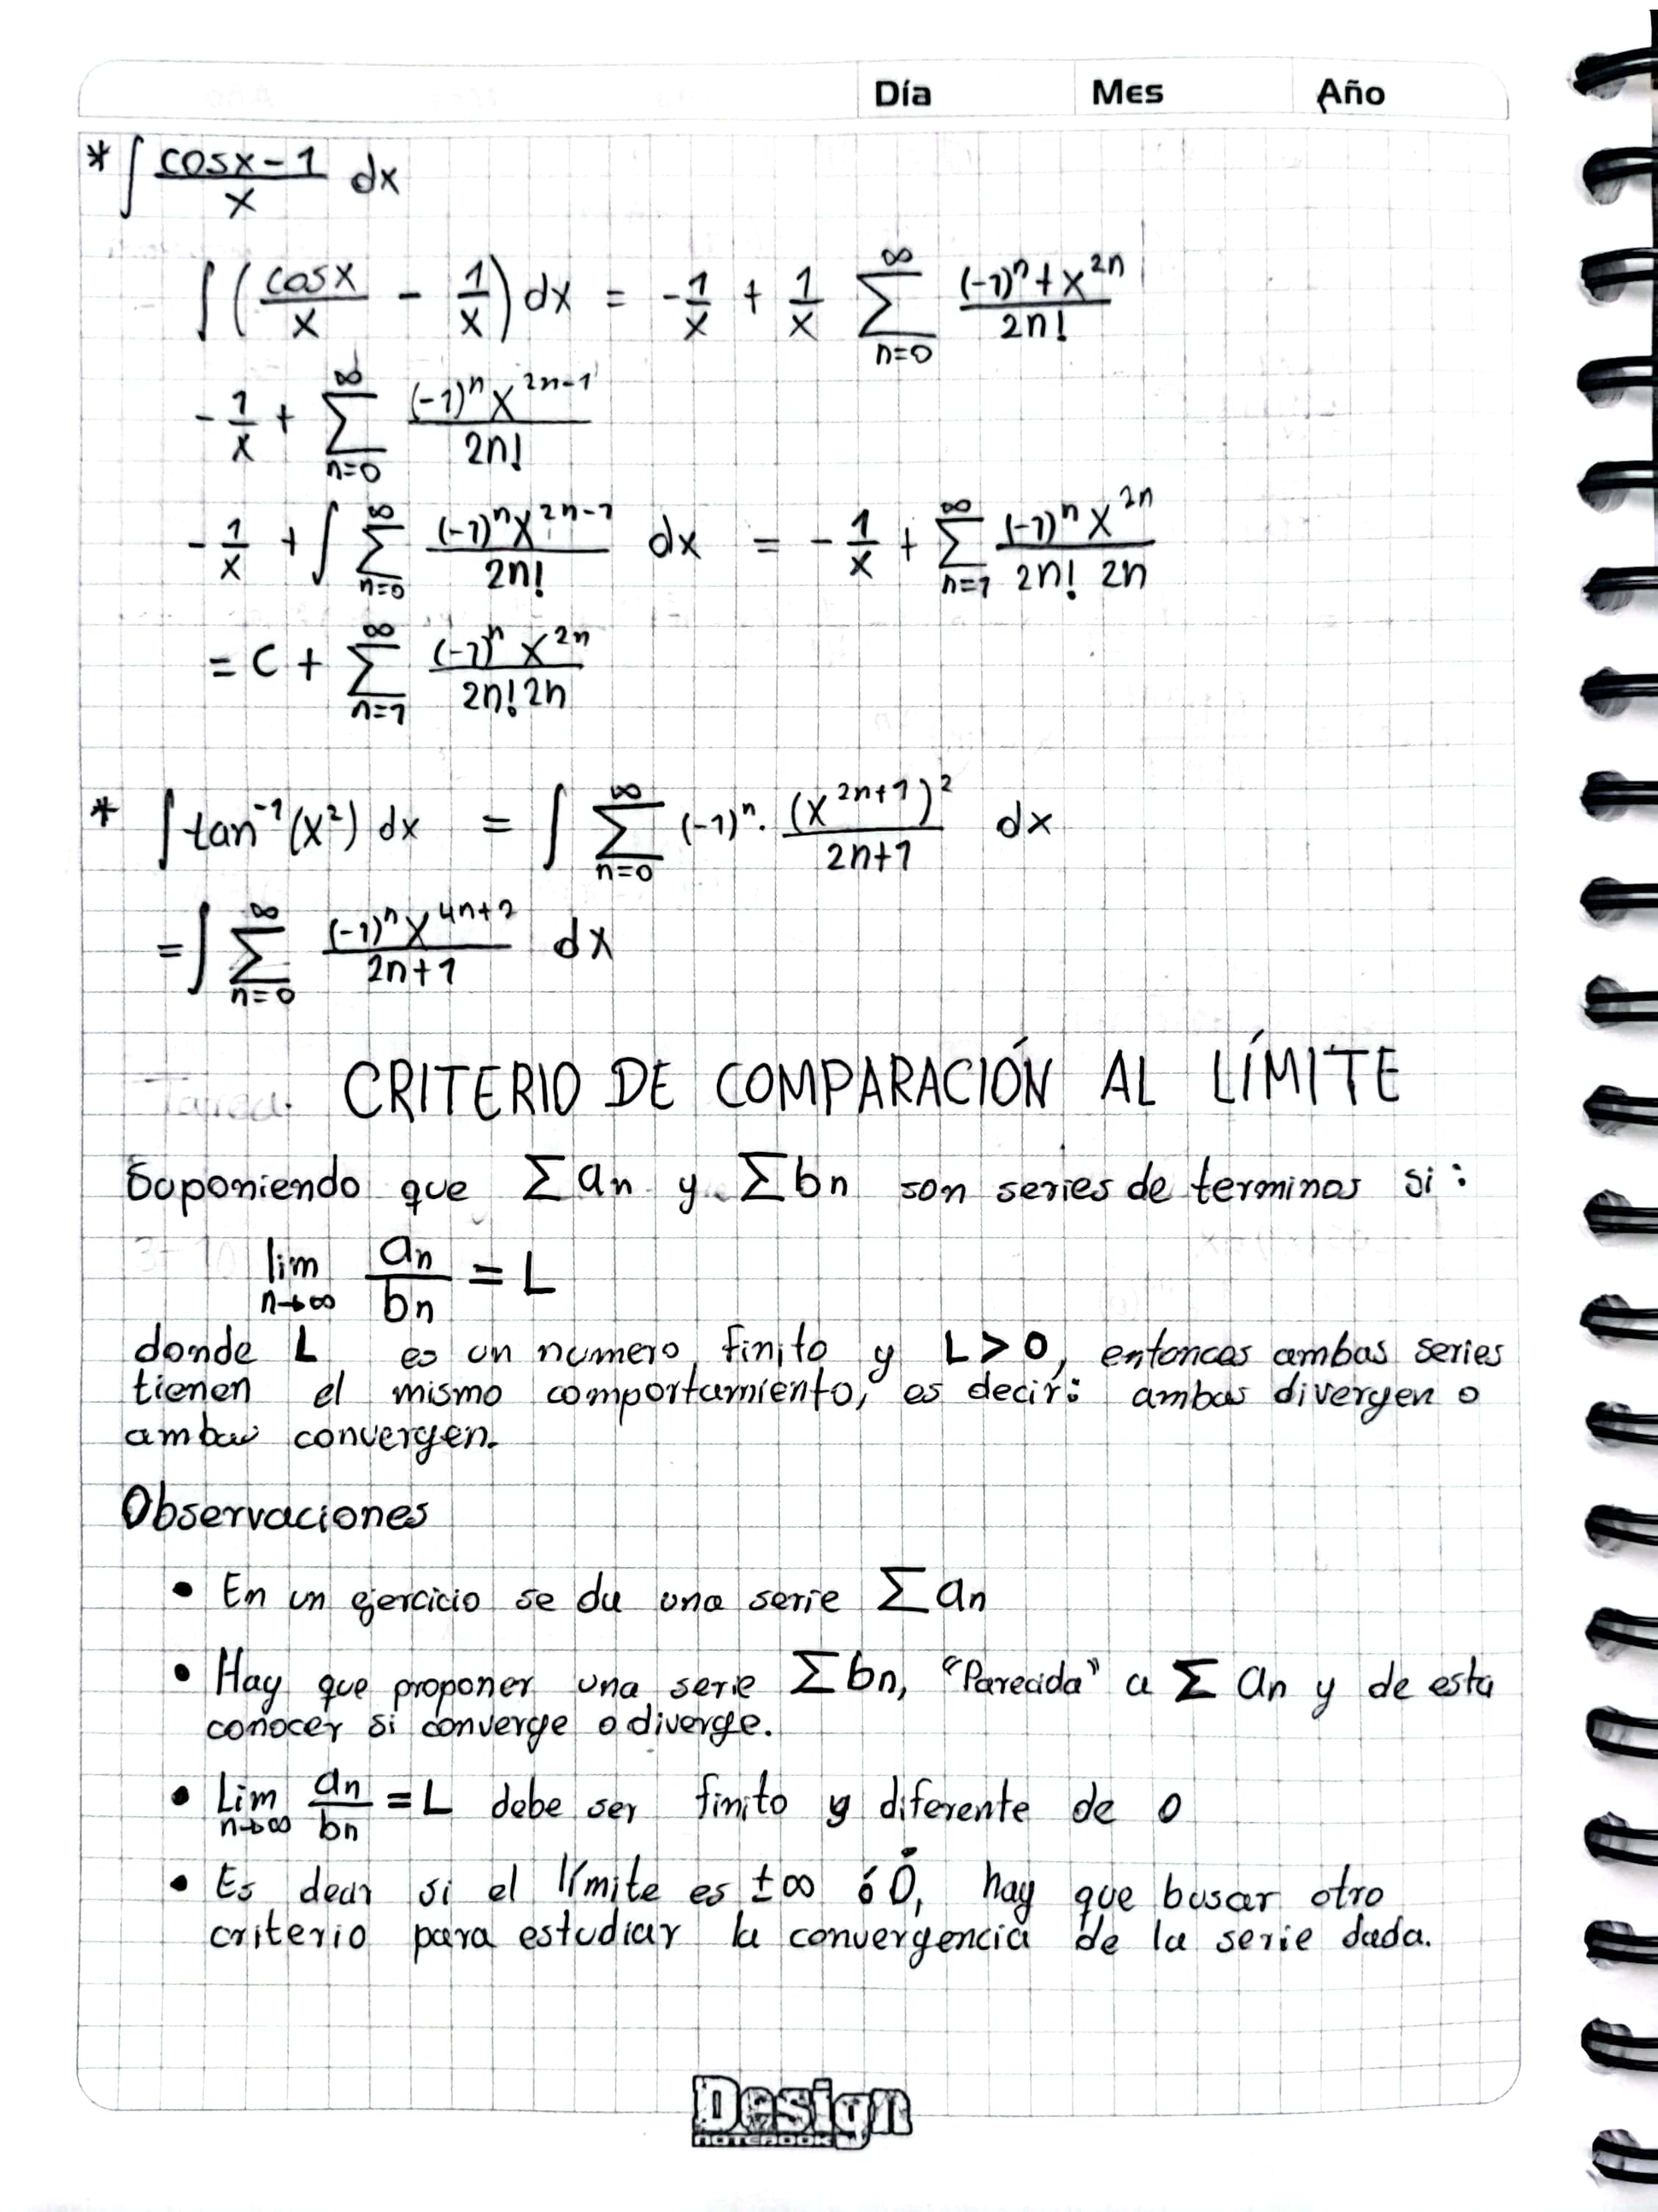 Día Mes Año
* ∫ (cosx-1)/x dx
∫ (cosx/x - 1/x) dx = -1/x + 1/x ∑_{n=0}^{∞} ((-1)^n + x^{2n})/2n!
-1/x + ∑_{n=0}^{∞} ((-1)^n x^{2n-1})/2n!
-1/x + ∫ ∑_{n=0}^{∞} ((-1)^n x^{2n-1})/2n! dx = -1/x + ∑_{n=1}^{∞} ((-1)^n x^{2n})/(2n! 2n)
= C + ∑_{n=1}^{∞} ((-1)^n x^{2n})/(2n! 2n)
* ∫ tan^{-1}(x^2) dx = ∫ ∑_{n=0}^{∞} (-1)^n · (x^{2n+1})^2/(2n+1) dx
= ∫ ∑_{n=0}^{∞} ((-1)^n x^{4n+2})/(2n+1) dx
CRITERIO DE COMPARACIÓN AL LÍMITE
Suponiendo que ∑an y ∑bn son series de terminos si:
lim_{n→∞} an/bn = L
donde L es un numero finito y L>0, entonces ambas series
tienen el mismo comportamiento, es decir: ambas divergen o
ambas convergen.
Observaciones
• En un ejercicio se da una serie ∑an
• Hay que proponer una serie ∑bn, "Parecida" a ∑an y de esta
conocer si converge o diverge.
• Lim_{n→∞} an/bn = L debe ser finito y diferente de 0
• Es decir si el límite es ±∞ ó 0, hay que busar otro
criterio para estudiar la convergencia de la serie dada.
Design
NOTEBOOK